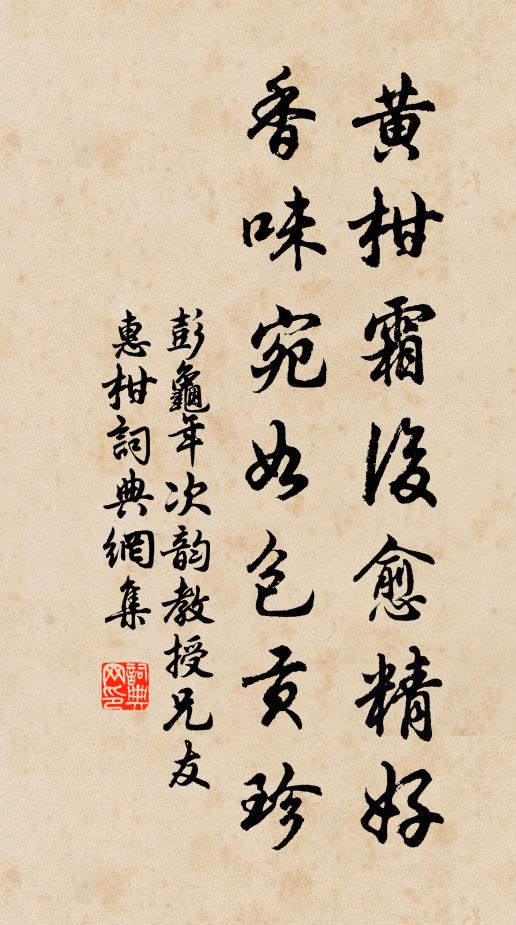 黄柑霜後愈精好
香味宛如包貢珍
彭龜年次韵教授兄友
惠柑詞典網集
詞典网印